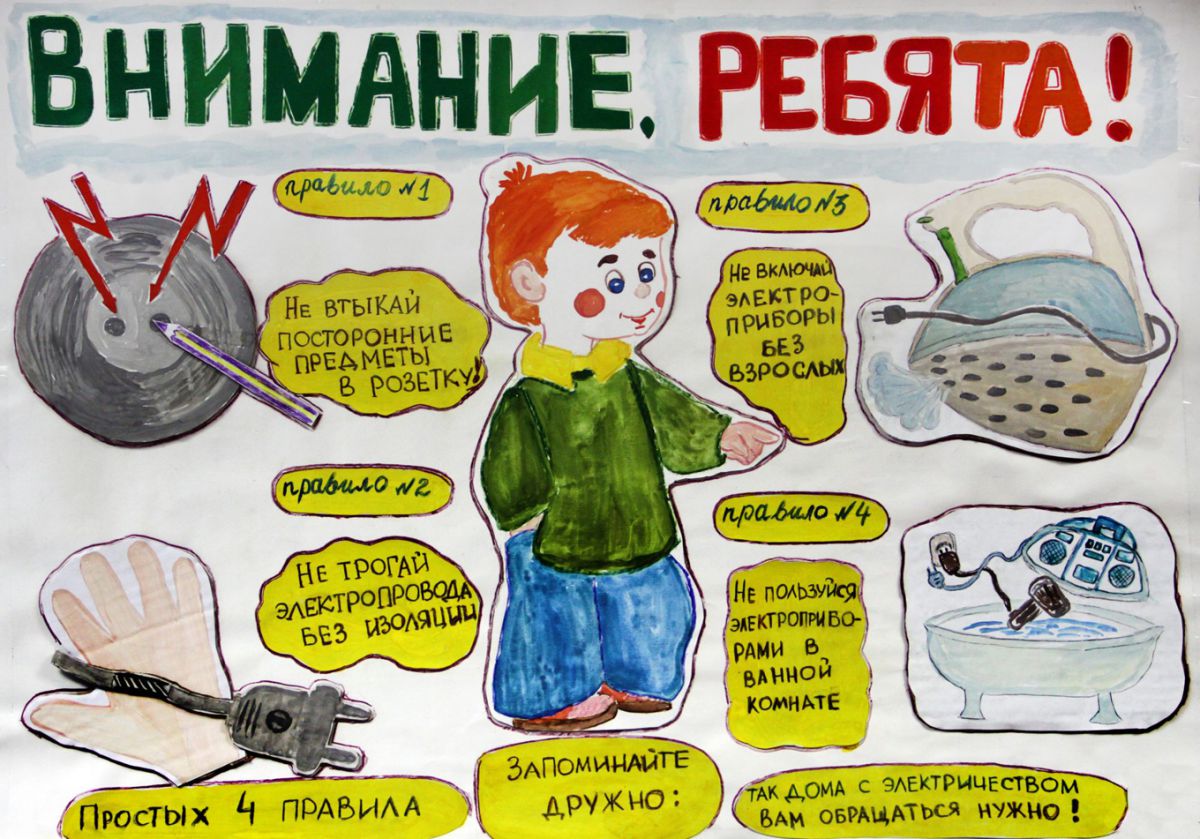 ВНИМАНИЕ, РЕБЯТА!
правило №1
НЕ ВТЫКАЙ
ПОСТОРОННИЕ
ПРЕДМЕТЫ
В РОЗЕТКУ!
правило №2
НЕ ТРОГАЙ
ЭЛЕКТРОПРОВОДА
БЕЗ ИЗОЛЯЦИИ
правило №3
НЕ ВКЛЮЧАЙ
ЭЛЕКТРО-
ПРИБОРЫ
БЕЗ
ВЗРОСЛЫХ
правило №4
НЕ ПОЛЬЗУЙСЯ
ЭЛЕКТРОПРИБО-
РАМИ В
ВАННОЙ
КОМНАТЕ
ПРОСТЫХ 4 ПРАВИЛА
ЗАПОМИНАЙТЕ
ДРУЖНО:
ТАК ДОМА С ЭЛЕКТРИЧЕСТВОМ
ВАМ ОБРАЩАТЬСЯ НУЖНО!